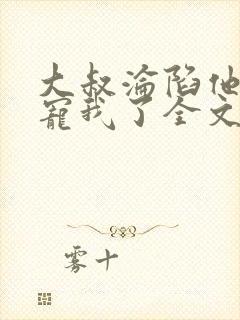 大叔淪陷他
寵我了全文
雾十